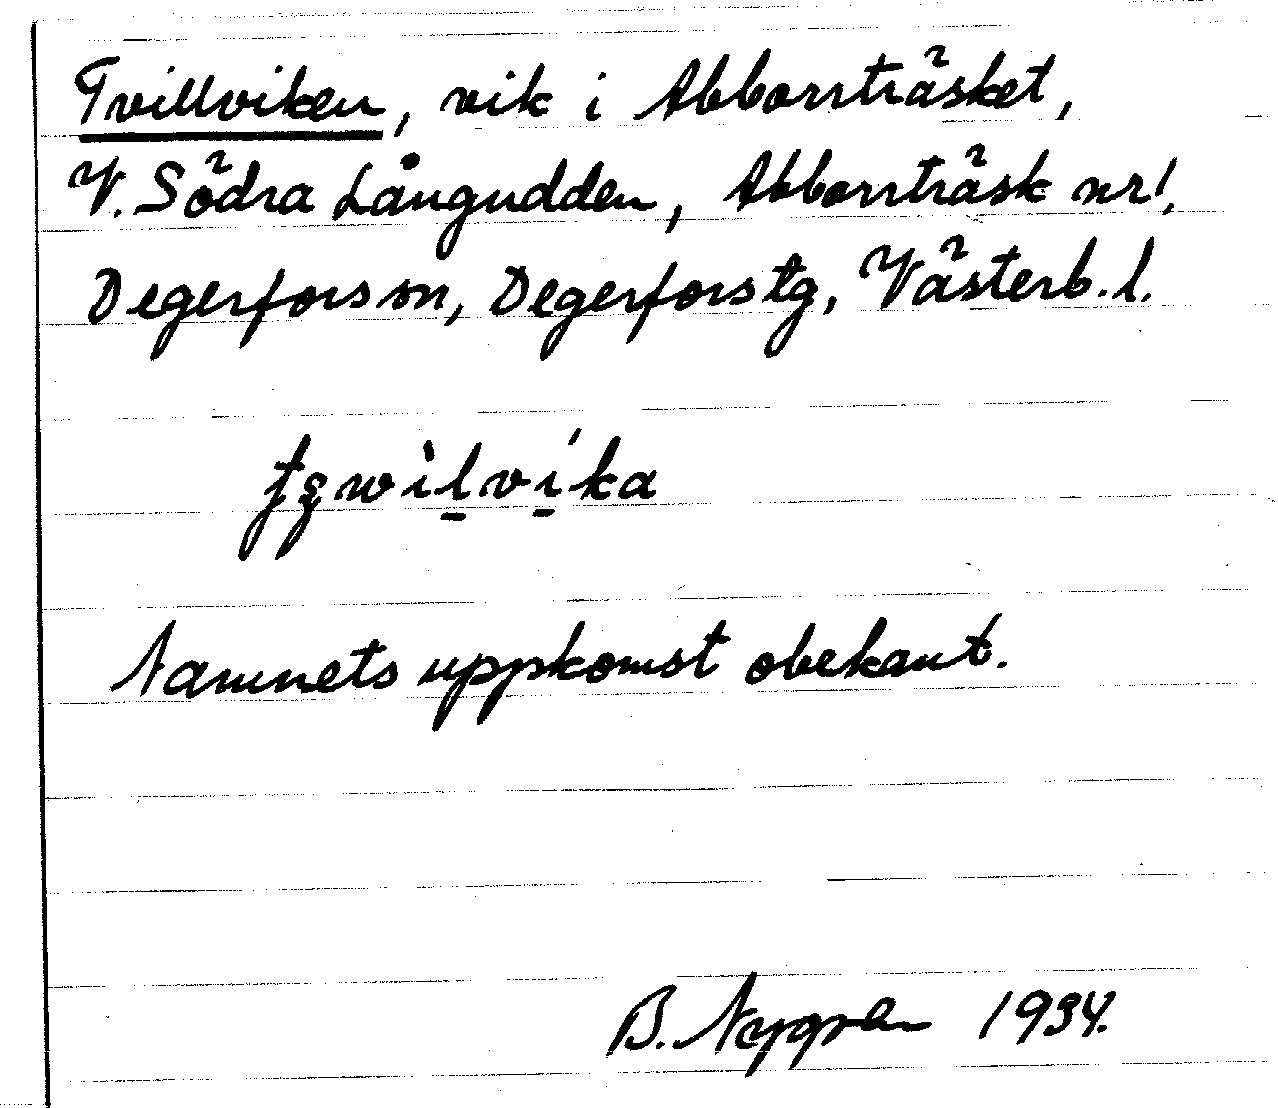 Tvillviken, vik i Abborrträsket,
V. Södra Långudden, Abborrträsk nr 1,
Degerfors sn, Degerfors tg, Västerb. l.
tʂwìlvíka
Namnets uppkomst obekant.
B. Nygren 1934.